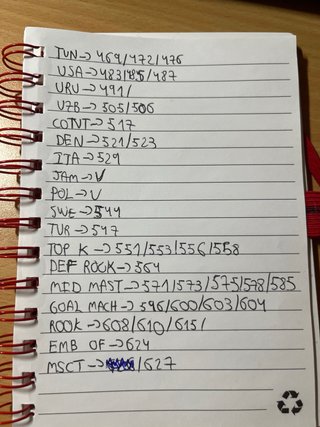 TUN→469/472/476
USA→483/485/487
URU→491/
UZB→505/506
CONT→517
DEN→521/523
ITA→529
JAM→V
POL→V
SWE→544
TUR→547
TOP K→551/553/556/558
DEF ROCK→564
MID MAST→571/573/575/578/585
GOAL MACH→596/600/603/604
ROOK→608/610/615/
EMB OF→624
MSCT→/627